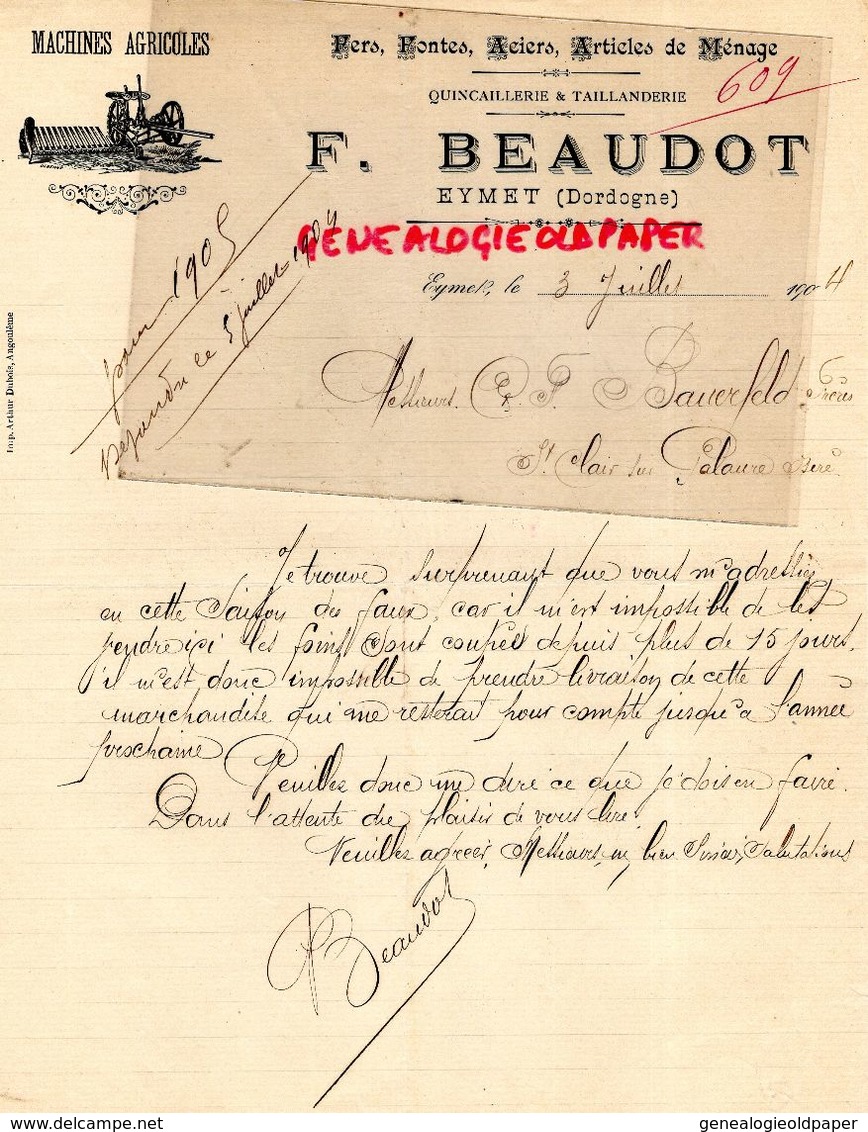 MACHINES AGRICOLES
Fers, Fontes, Aciers, Articles de Ménage
609
QUINCAILLERIE & TAILLANDERIE
F. BEAUDOT
EYMET (Dordogne)
GENEALOGIEOLDPAPER
pour 1905
repondu ce 5 juillet 1904
Eymet, le 3 Juillet 1904
Imp. Arthur Dubois, Angoulême
Messieurs C. F. Bauerfeld Frères
St Clair sur Galaure Isère
Je trouve surprenant que vous m'adressiez
en cette saison des faux, car il m'est impossible de les
vendre ici les foins sont coupés depuis plus de 15 jours,
il m'est donc impossible de prendre livraison de cette
marchandise qui me resterait pour compte jusqu'a l'année
prochaine Veuillez donc me dire ce que je dois en faire.
Dans l'attente du plaisir de vous lire,
Veuillez agréer, Messieurs, m bien Sincères Salutations
Beaudot
delcampe.net
genealogieoldpaper